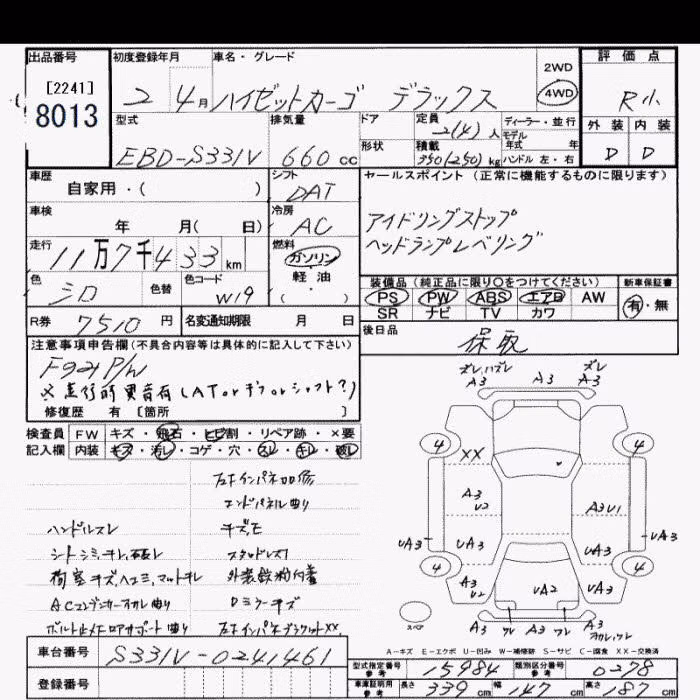 出品番号 初度登録年月 車名・グレード 2WD 評価点
[2241] 2 4月 ハイゼットカーゴ デラックス 4WD R小
8013 型式 排気量 ドア 定員 2(4)人 ディーラー・並行 外装 内装
モデル年式 年式
EBD-S331V 660cc 形状 積載 350(250)kg ハンドル 左・右 D D
車歴 シフト セールスポイント(正常に機能するものに限ります)
自家用・( ) DAT
車検 冷房 アイドリングストップ
年 月( 日) AC ヘッドランプレベリング
走行 燃料
11万7千433km ガソリン
色 色替 色コード 軽・油 装備品(純正品に限り○をつけてください) 新車保証書
シロ W19 ( ) PS PW ABS エアB AW 有・無
SR ナビ TV カワ
R券 7510円 名変通知期限 月 日 後日品
注意事項申告欄(不具合内容等は具体的に記入して下さい) 保取
F P/W
※走行時異音有(ATorデフorシャフト?)
修復歴 有 [箇所 ]
検査員 FW キズ・飛石・ヒビ割・リペア跡・×要
記入欄 内装 キズ・汚レ・コゲ・穴・スレ・キレ・破レ
左Fインパネ加修
エンドパネル曲り
ハンドルスレ キズ、モ
シートシミ、チレ、
荷室キズ、ヘコミ、マットチレ 外装鉄粉付着
ACコンデンサーオカレ曲り Dミラーキズ
曲り 左FインパネブラケットXX
ズレ,ハズレ ズレ
A3 A3 A3
4 XX 4
A3 U2 A3 U1
UA3 UA3 UA3 UA3
4 A3 U2 UA2 UA3 4
スペア A3 ワレ ワレ A3
A-キズ E-エクボ U-凹み W-補修跡 S-サビ C-腐食 XX-交換済
車台番号 S331V-0241461 型式指定番号 参考 15984 類別区分番号 参考 0278
登録番号 車庫証明用 参考 長さ 339cm 幅 147cm 高さ 187cm